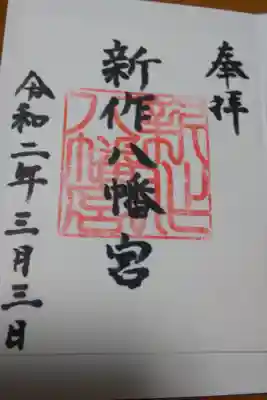 奉拝
新作八幡宮
令和二年三月三日
新作
八幡宮